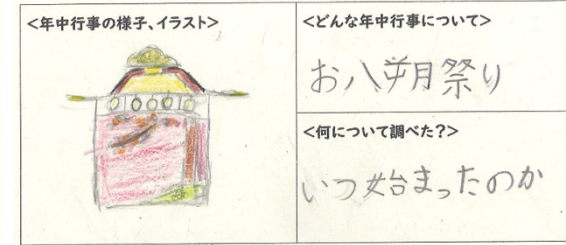 <年中行事の様子、イラスト>
<どんな年中行事について>
お八朔祭り
<何について調べた?>
いつ始まったのか